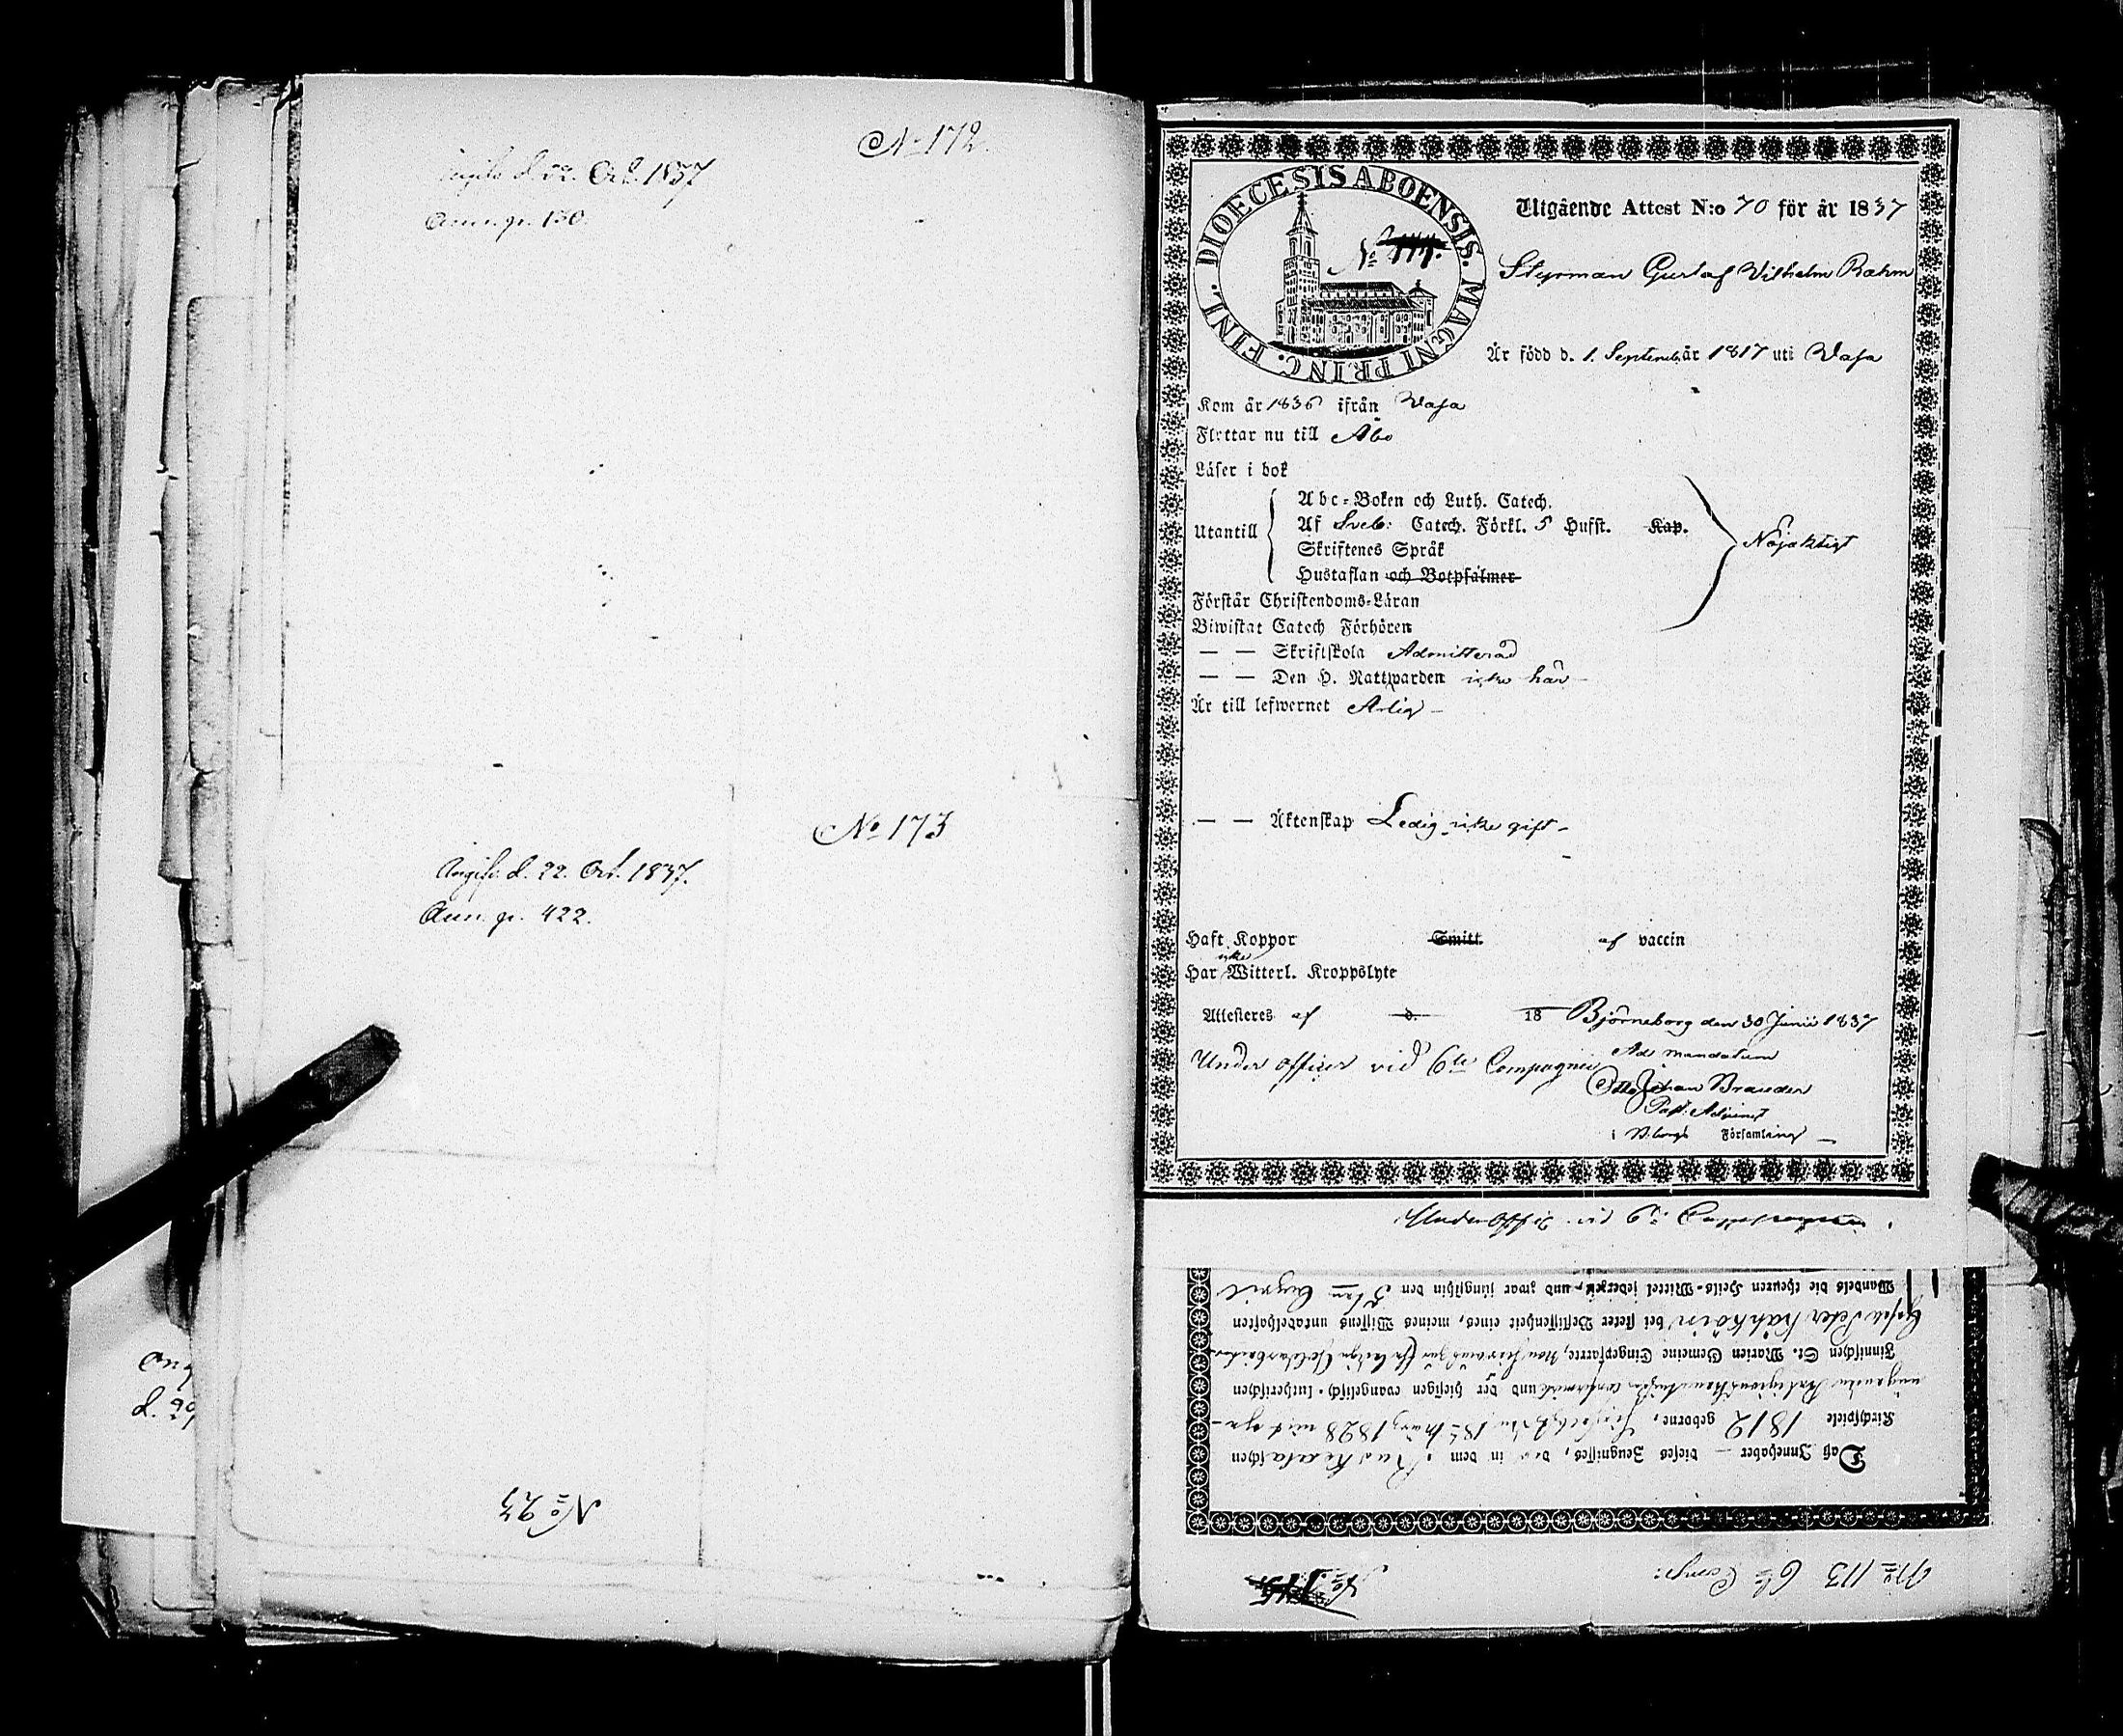 No 172.
d. 22. Oct. 1837
Ann. gr. 130.
No 173
Angifv. d. 22. Oct. 1837.
Ann. gr. 422.
No 23
DIOECESIS ABOENSIS. MAGNI PRINC. FINL.
No
Utgående Attest N:o 70 för år 1837
Styrman Gustaf Vilhelm Rahm
Är född d. 1. September år 1817 uti Vasa
Kom år 1836 ifrån Vasa
Flyttar nu till Åbo
Läser i bok
Utantill
Abc-Boken och Luth. Catech.
Af Sveb: Catech. Förkl. 5 Hufst. Kap.
Skriftenes Språk
Hustaflan och Botpsalmer
Nöjaktigt
Förstår Christendoms-Läran
Biwistat Catech Förhören
— — Skriftskola Admitterad
— — Den H. Nattwarden icke här
Är till lefwernet Ärlig
— — Äktenskap Ledig icke gift
Haft Koppor Smitt af vaccin
Har icke Witterl. Kroppslyte
Attesteres af d. 18 Björneborg den 30 Junii 1837
Under officer vid 6te Compagnie
Ad mandatum
Otto Johan Brander
Past. Adjunct
i B.borgs Församling
Under Offic. vid 6te Compagnie
No 113 6te Comp:
Daß Innehaber dieses Zeugnisses, der in dem Ruskealaschen
Kirchspiele 1812 geborne, den 18ten März 1828
confirmirt und der hiesigen evangelisch-lutherischen
Finnischen St. Marien Gemeine Eingepfarrte,
Peter bei steter Beflissenheit eines, meines Wissens untadelhaften
Wandels die theuren Heils-Mittel jederzeit, und zwar jüngsthin den 5ten April